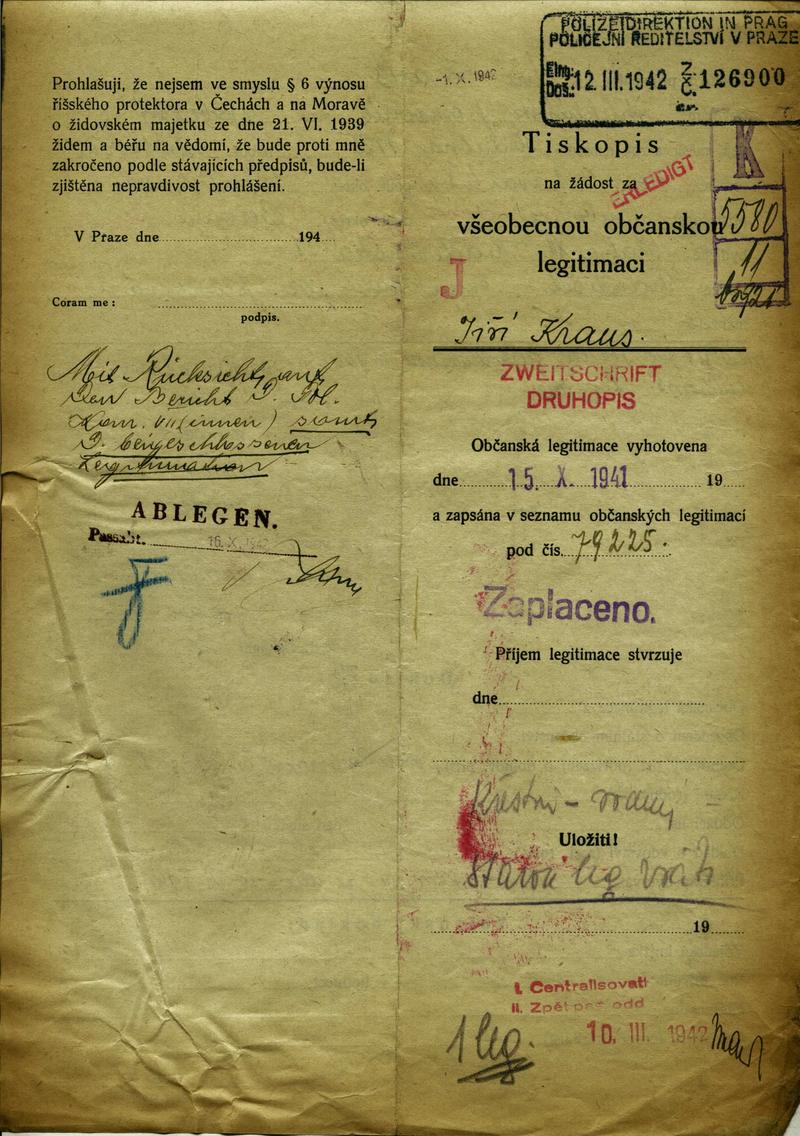 Prohlašuji, že nejsem ve smyslu § 6 výnosu
říšského protektora v Čechách a na Moravě
o židovském majetku ze dne 21. VI. 1939
židem a béřu na vědomí, že bude proti mně
zakročeno podle stávajících předpisů, bude-li
zjištěna nepravdivost prohlášení.
V Praze dne 194
Coram me :
podpis.
Mit Rücksicht auf
den Bericht d. Pol.
Kom. VII (innen) samt
d. beigeschlossenen
Legitimation
ABLEGEN.
Passabt. 16. X.
-1. X. 1942
POLIZEIDIREKTION IN PRAG
POLICEJNÍ ŘEDITELSTVÍ V PRAZE
Eing.: Doš.: 12. III. 1942 Z. Č. 126900
Tiskopis
K
na žádost za
ERLEDIGT
všeobecnou občanskou
5580
legitimaci
11
J
1921
Jiří Kraus.
ZWEITSCHRIFT
DRUHOPIS
Občanská legitimace vyhotovena
dne 15. X. 1941 19
a zapsána v seznamu občanských legitimací
pod čís. 79225.
Zaplaceno.
Příjem legitimace stvrzuje
dne
Křestní - rodný -
Uložiti!
leg
19
I. Centralisovati
II. Zpět odd
10. III. 1942
1 leg.